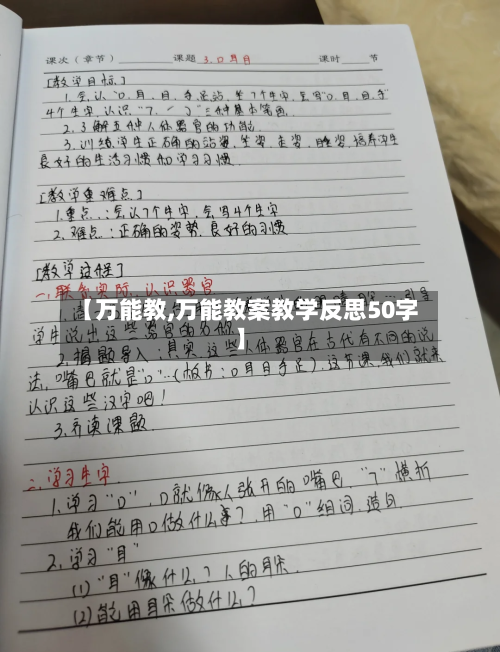 课次（章节）　　　课题 3.口耳目　　　课时　　节
［教学目标］
1.会认"口、耳、目、手、足、站、坐"7个生字，会写"口、耳、目、手"
4个生字，认识 三种基本笔画.
2.了解五种人体器官的功能.
3.训练学生正确的站姿、坐姿、走姿、睡姿，培养学生
良好的生活习惯和学习习惯.
［教学重难点］
1.重点：会认7个生字，会写4个生字
2.难点：正确的姿势，良好的习惯
［教学过程］
一、联系实际，认识器官
1.
【万能教,万能教案教学反思50字
】
学生说出这些器官的名称
2.揭题导入：其实，这些人体器官在古代有不同的说
法，嘴巴就是"口"…（板书：口耳目手足）.这节课，我们就来
认识这些汉字吧！
3.齐读课题.
二、学习生字.
1.学习"口"，口就像人张开的嘴巴. 横折
我们能用口做什么事？，用"口"组词，造句.
2.学习"耳"
(1)"耳"像什么？人的耳朵.
(2)能用耳朵做什么？